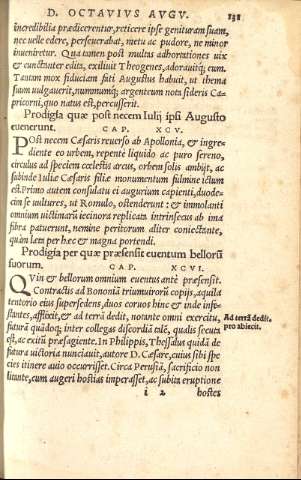 D. OCTAVIVS AVGV. 131
incredibilia prædicerentur, reticere ipse genituram suam,
nec velle edere, perseuerabat, metu ac pudore, ne minor
inueniretur. Qua tamen post multas adhortationes uix
& cunctanter edita, exiliuit Theogenes, adorauitq́; eum.
Tantam mox fiduciam fati Augustus habuit, ut thema
suum uulgauerit, nummumq́; argenteum nota sideris Ca-
pricorni, quo natus est, percusserit.
Prodigia quæ post necem Iulij ipsi Augusto
euenerunt. CAP. XCV.
POst necem Cæsaris reuerso ab Apollonia, & ingre-
diente eo urbem, repente liquido ac puro sereno,
circulus ad speciem cœlestis arcus, orbem solis ambijt, ac
subinde Iuliæ Cæsaris filiæ monumentum fulmine ictum
est. Primo autem consulatu ei augurium capienti, duode-
cim se uultures, ut Romulo, ostenderunt: & immolanti
omnium uictimarũ iecinora replicata intrinsecus ab ima
fibra patuerunt, nemine peritorum aliter coniectante,
quàm læta per hæc & magna portendi.
Prodigia per quæ præsensit euentum bellorũ
suorum. CAP. XCVI.
QVin & bellorum omnium euentus antè præsensit.
Contractis ad Bononiã triumuirorũ copijs, aquila
tentorio eius supersedens, duos coruos hinc & inde infe-
stantes, afflixit, & ad terrã dedit, notante omni exercitu,
Ad terrã dedit.
futurã quãdoq́; inter collegas discordiã talẽ, qualis secuta
pro abiecit.
est, ac exitũ præsagiente. In Philippis, Thessalus quidã de
futura uictoria nunciauit, autore D. Cæsare, cuius sibi spe
cies itinere auio occurrisset. Circa Perusiã, sacrificio non
litante, cum augeri hostias imperasset, ac subita eruptione
i 2 hostes